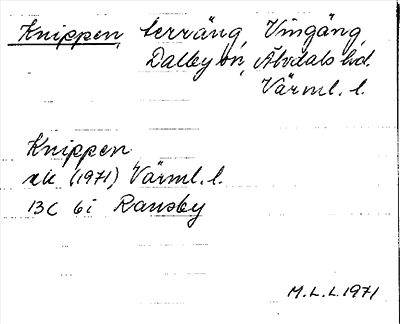 Knippen, terräng, Vingäng,
Dalby sn, Älvdals hd.
Värml. l.
Knippen
xk (1971) Värml. l.
13C 6i Ransby
M.L.L. 1971